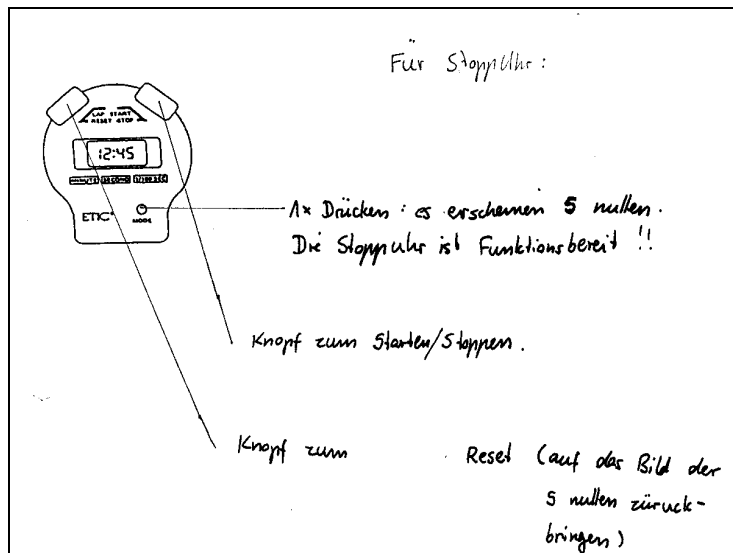 Für Stoppuhr:
LAP START
RESET STOP
12:45
MINUTE SECOND 1/100 SEC
ETIC
MODE
1x Drücken: es erscheinen 5 nullen.
Die Stoppuhr ist Funktionsbereit !!
Knopf zum Starten/Stoppen.
Knopf zum Reset (auf das Bild der
5 nullen zürück-
bringen)